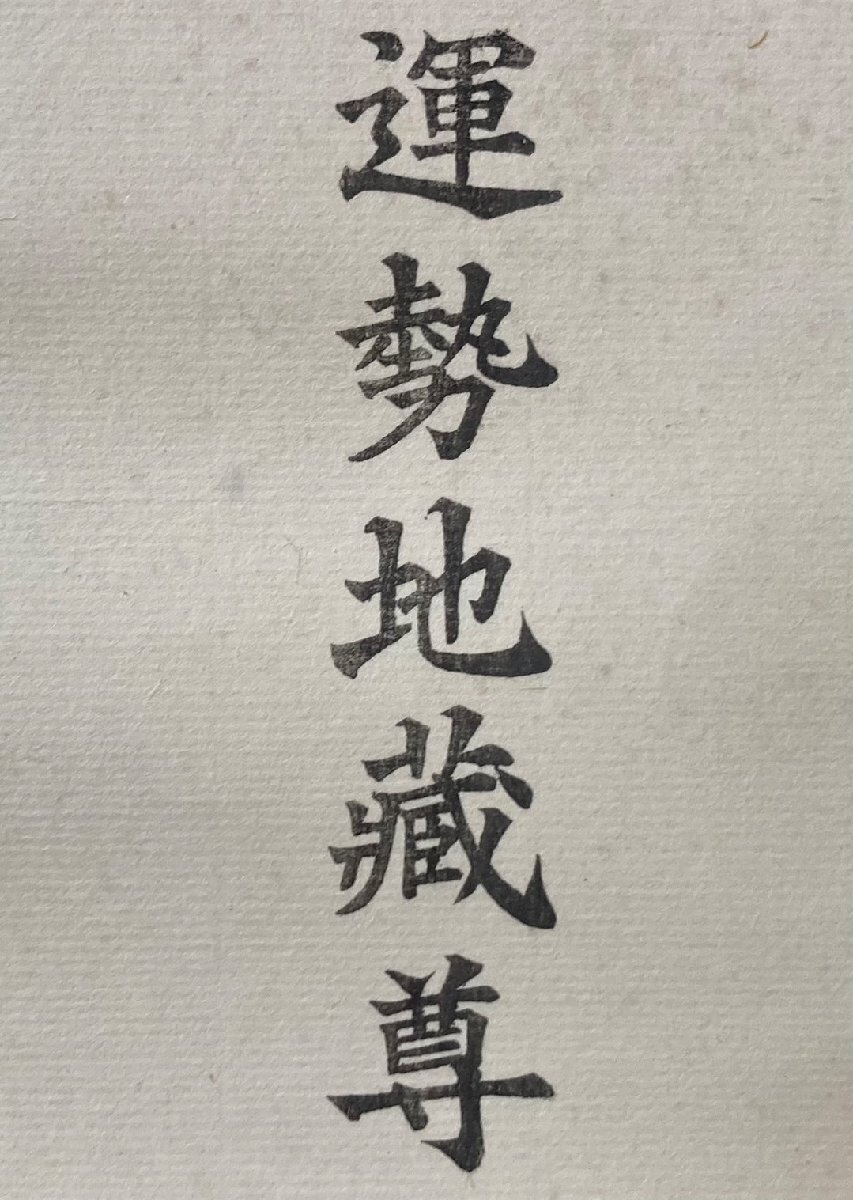 運勢地藏尊